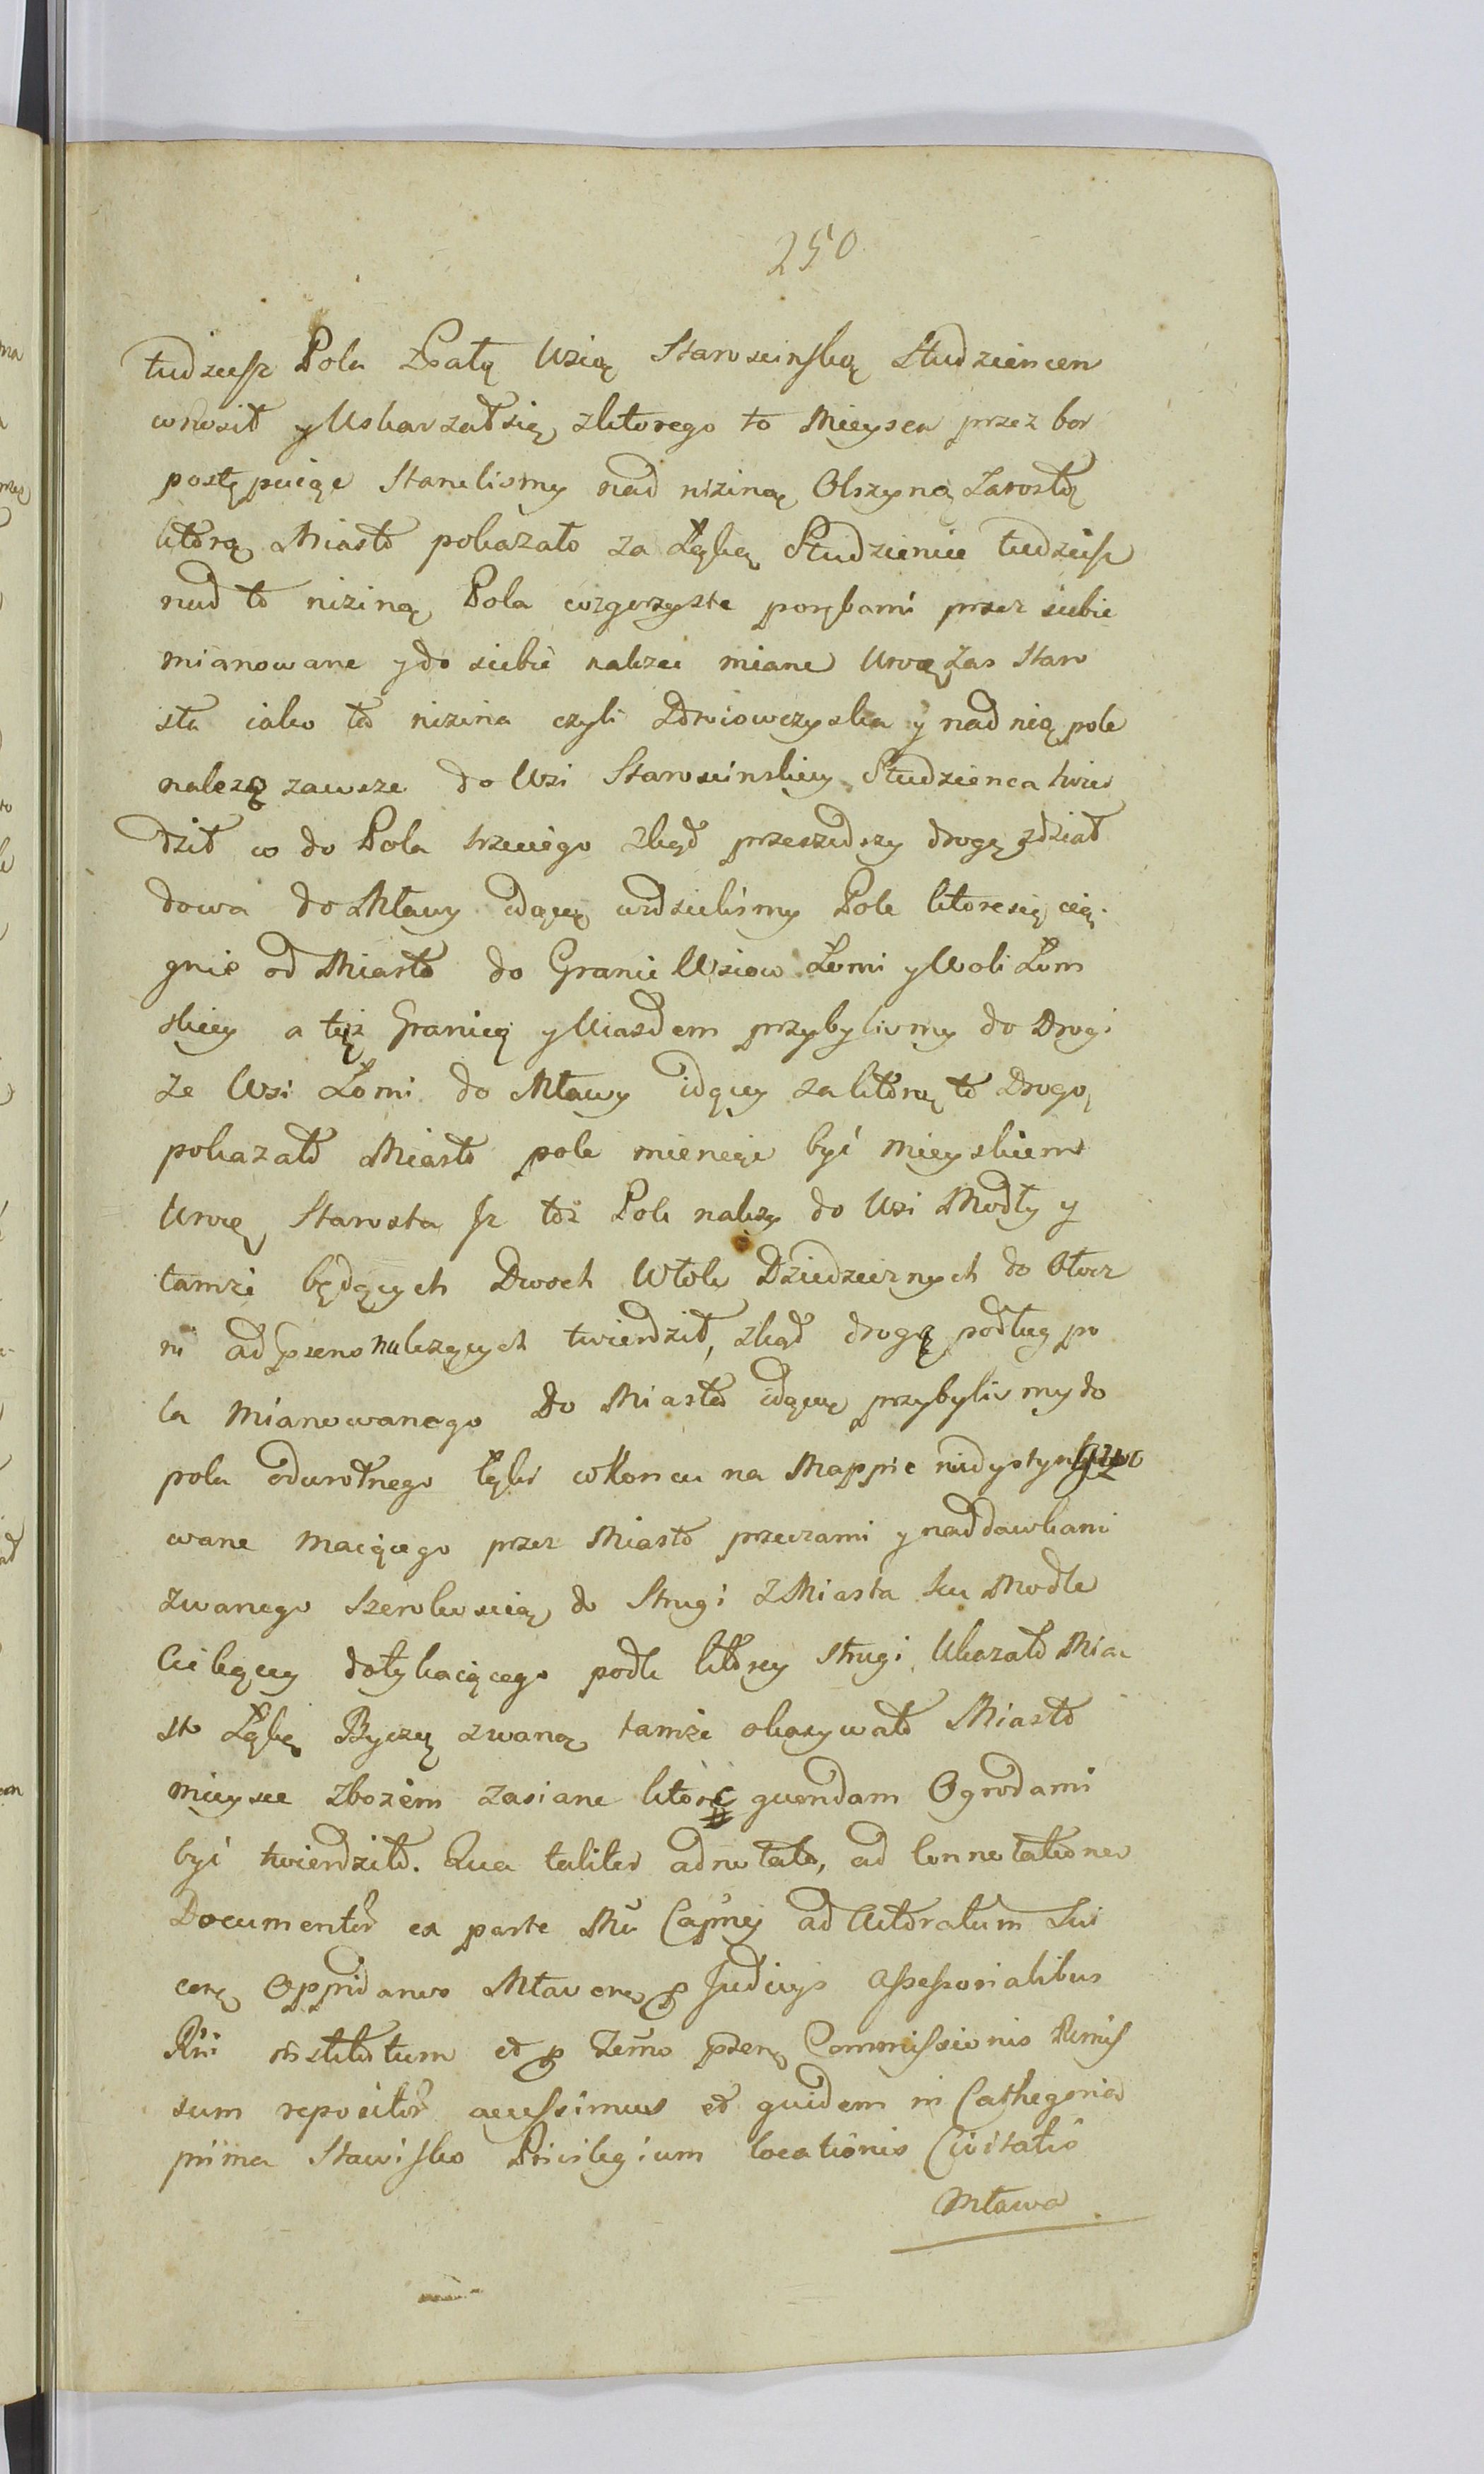 250
tudzieſz Pola Łąką Wsią Staroscinſką Studziencem
wnosił y Uskarzał się z ktorego to Mieysca przez bor
postępuiąc Stanelismy nad niziną Olszyną Zarosłą
ktorą Miasto pokazało za Łąkę Studzienice tudzieſz
nad to niziną Pola wzgorzyste porębami przez siebie
mianowane y do siebie nalezec miane Uroę Zas Staro
sta iako to nizina czyli Zdroiowczyska y nad nią pole
nalezą zawsze do Wsi Staroscinskiey Studzienca twier
dził co do Pola trzeciego zkąd przeszedszy drogę z Dział
dowa do Mławy idącą widzielismy Pole ktore się cią
gnie od Miasta do Granic Wsiow Łomi y Woli Łom
skiey a tąż Granicą y Uiazdem przybylismy do Drogi
ze Wsi Łomi do Mławy idącey za ktorą to Drogą
pokazało Miasto pole mieniąc być mieyskiem
Uroę Starosta ſz toż Pole nalezy do Wsi Modły y
tamże będących Dwoch Włok Dziedzicznych do
ni ad psens nalezących twierdził, zkąd drogą podług po
la Mianowanego Do Miasta idącą przybylismy do
pola odwrotnego łąki w Koncu na Mappie niedystyngwo
wane maiącego przez Miasto przeczami y naddawkami
zwanego Szerokoscią do Strugi z Miasta ku Modle
Ciekącey dotykaiącego podle ktorey strugi Ukazało Mia
sto Łąkę Byczą zwaną tamże okazywało Miasto
mieysce zbożem zasiane ktore quondam Ogrodami
być twierdziło. Qua taliter adnotata, ad connotationem
Documentor̃ ex parte Mci Capnej ad Actoratum Sui
cerę Oppidanos Mlavens p Judicijs Aſseſsorialibus
Rni institutum et p Temo psens Commiſsionis Remiſ
sum reposcitor̃ acceſsimus et quidem in Cathegoria
prima Stawiſko Privilegium locationis Civitatis
Mława